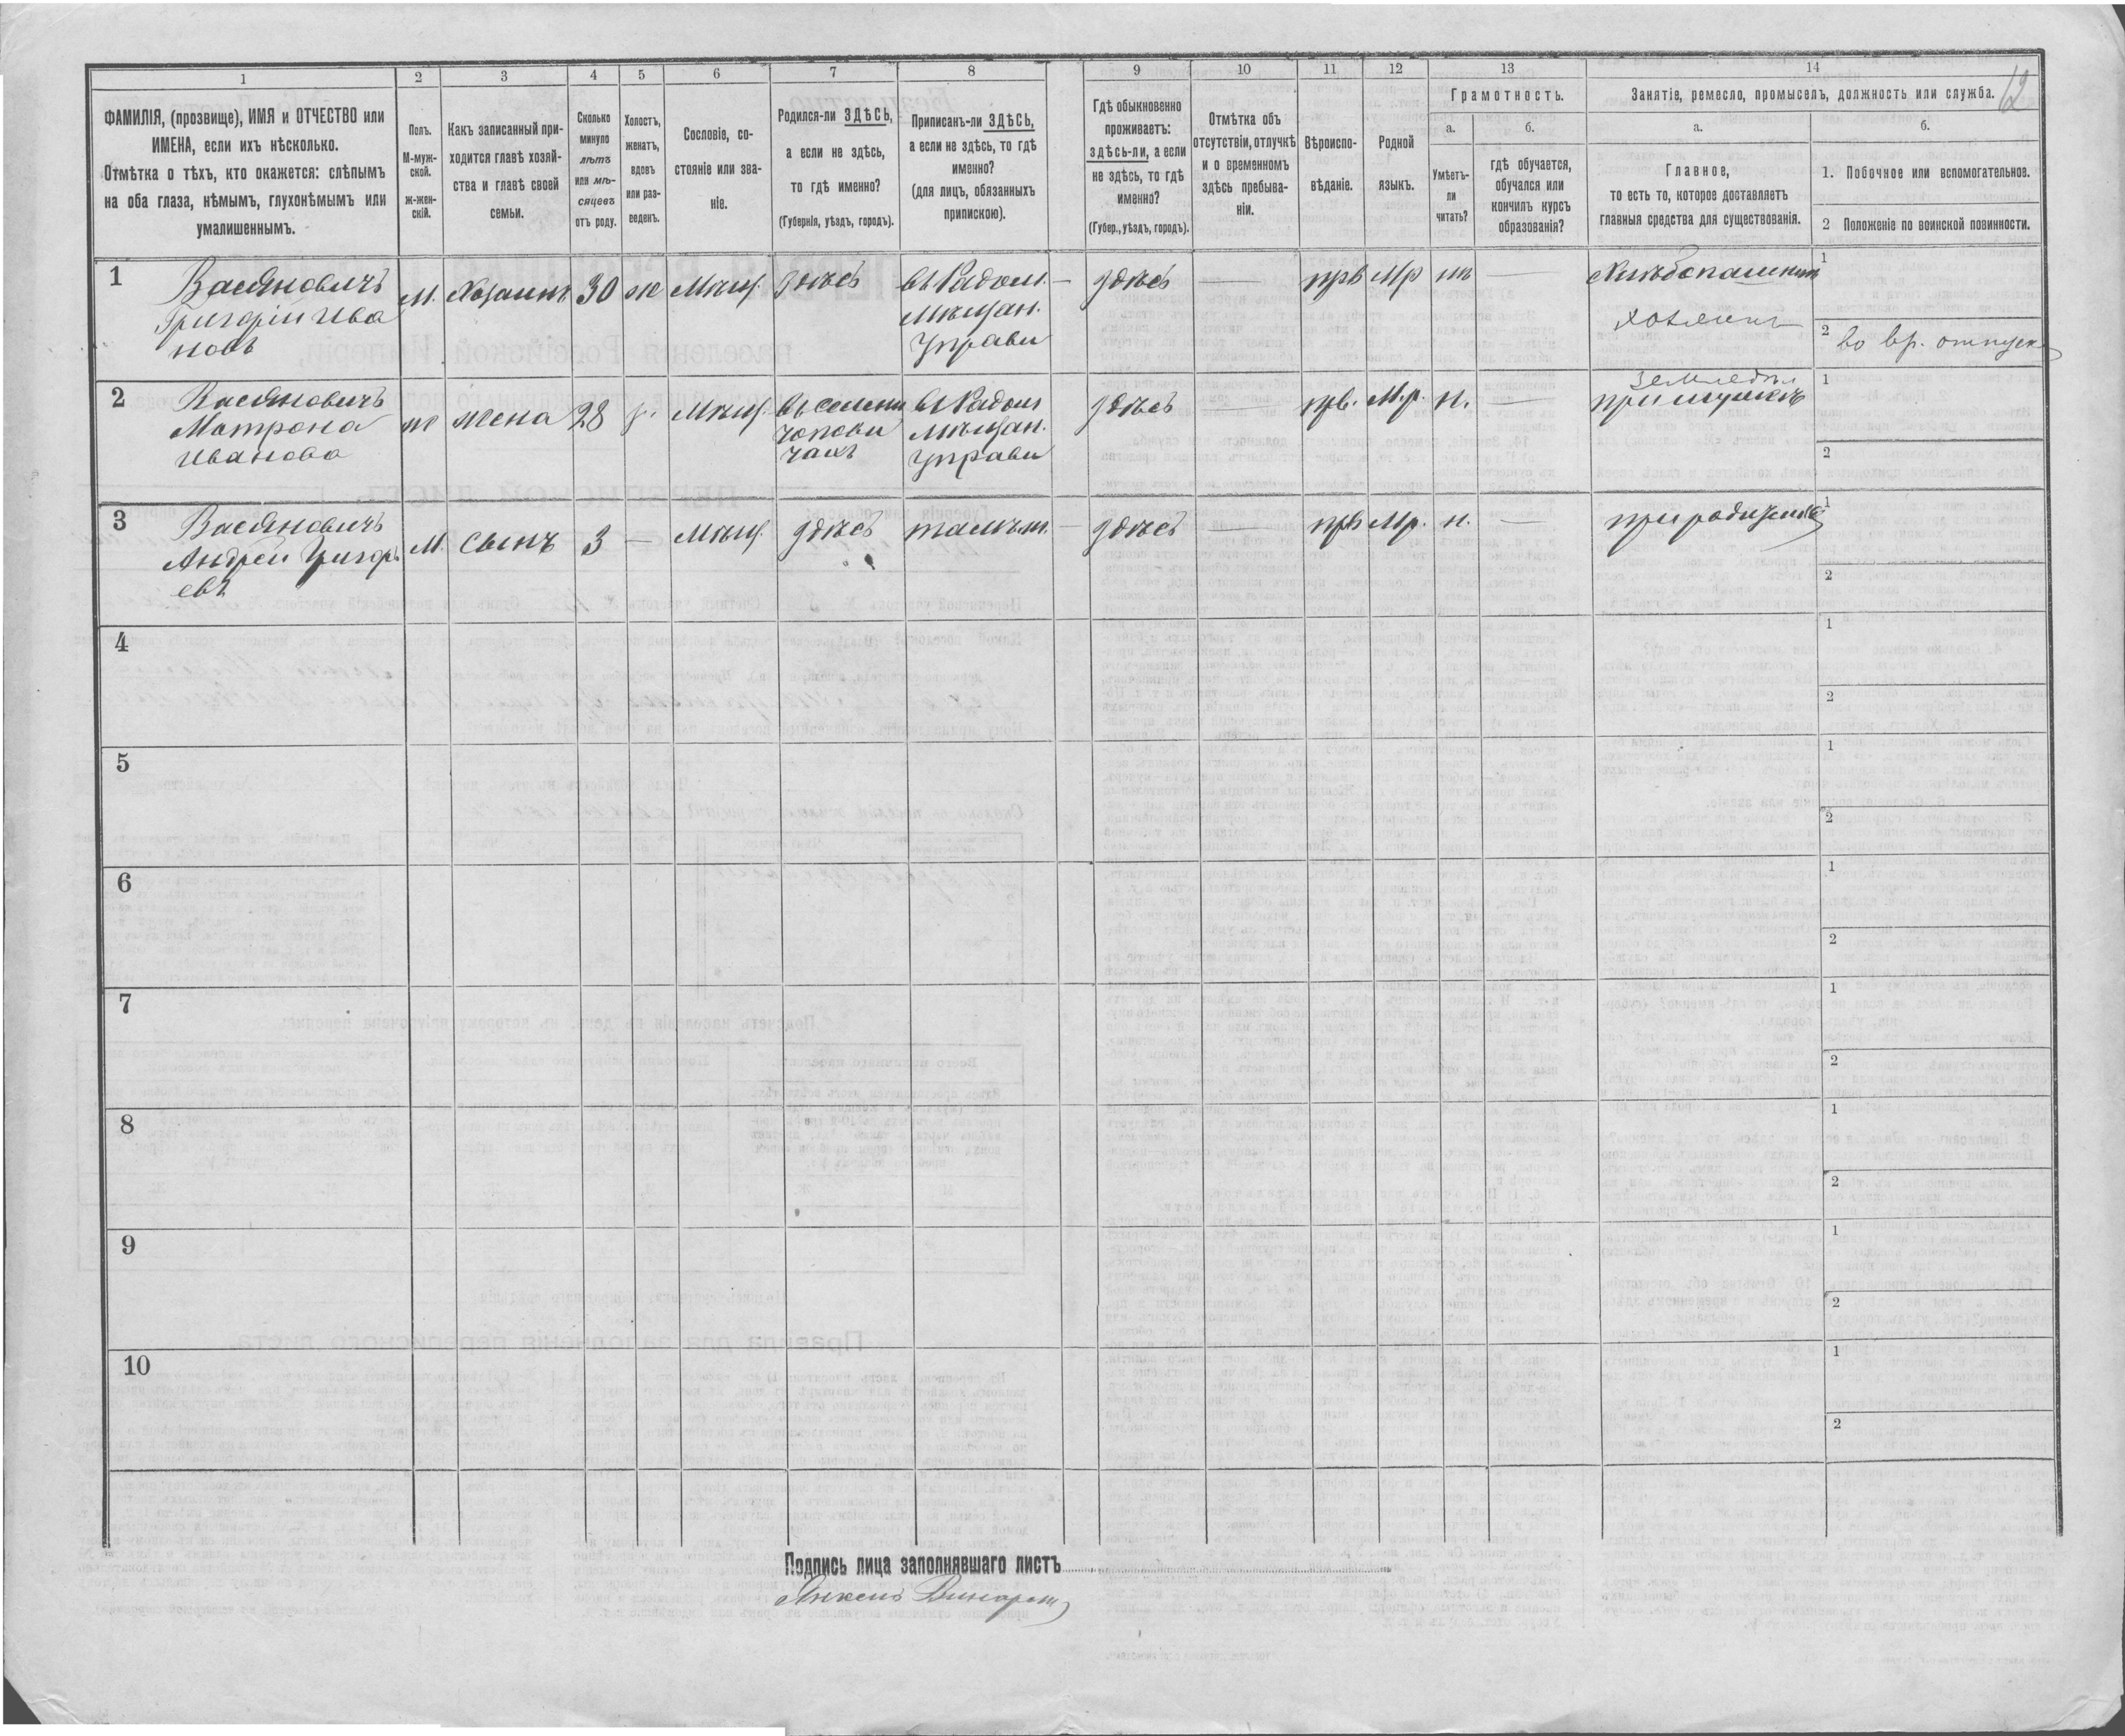 12
1 2 3 4 5 6 7 8 9 10 11 12 13 14
ФАМИЛІЯ, (прозвище), ИМЯ и ОТЧЕСТВО или
ИМЕНА, если ихъ нѣсколько.
Отмѣтка о тѣхъ, кто окажется: слѣпымъ
на оба глаза, нѣмымъ, глухонѣмымъ или
умалишеннымъ.
Полъ.
М-муж-
ской.
ж-жен-
скій.
Какъ записанный при-
ходится главѣ хозяй-
ства и главѣ своей
семьи.
Сколько
минуло
лѣтъ
или мѣ-
сяцевъ
отъ роду.
Холостъ,
женатъ,
вдовъ
или раз-
веденъ.
Сословіе, со-
стояніе или зва-
ніе.
Родился-ли ЗДѢСЬ,
а если не здѣсь,
то гдѣ именно?
(Губернія, уѣздъ, городъ).
Приписанъ-ли ЗДѢСЬ,
а если не здѣсь, то гдѣ
именно?
(для лицъ, обязанныхъ
припискою).
Гдѣ обыкновенно
проживаетъ:
здѣсь-ли, а если
не здѣсь, то гдѣ
именно?
(Губер., уѣздъ, городъ).
Отмѣтка объ
отсутствіи, отлучкѣ
и о временномъ
здѣсь пребыва-
ніи.
Вѣроиспо-
вѣданіе.
Родной
языкъ.
Грамотность.
а. б.
Умѣетъ-
ли
читать?
гдѣ обучается,
обучался или
кончилъ курсъ
образованія?
Занятіе, ремесло, промыселъ, должность или служба.
а. б.
Главное,
то есть то, которое доставляетъ
главныя средства для существованія.
1. Побочное или вспомогательное.
2 Положеніе по воинской повинности.
1
Васяновичъ
Григорій Ива
новъ
М. Хозаинъ 30 ж Мѣщ. здѣсь
въ Радом.
Мѣщан.
Управи
— здѣсь — прв Мр нѣ —
Хлѣбопашник
хозяинъ
1
2 во вр. отпуск
2
Васяновичъ
Матрона
Иванова
ж жена 28 з. Мѣщ.
въ селени
Чопови
чахъ
въ Радом
мѣщан.
Управи
здѣсь — прв. М.р. н. —
Земледѣл
при мужѣ
1
2
3
Васяновичъ
Андрей Григор.
евъ
М. Сынъ 3 — Мѣщ. здѣсь тамъ.ж. — здѣсь — прв Мр. н. —
при родителѣ
1
2
4
1
2
5
1
2
6
1
2
7
1
2
8
1
2
9
1
2
10
1
2
Подпись лица заполнявшаго листъ